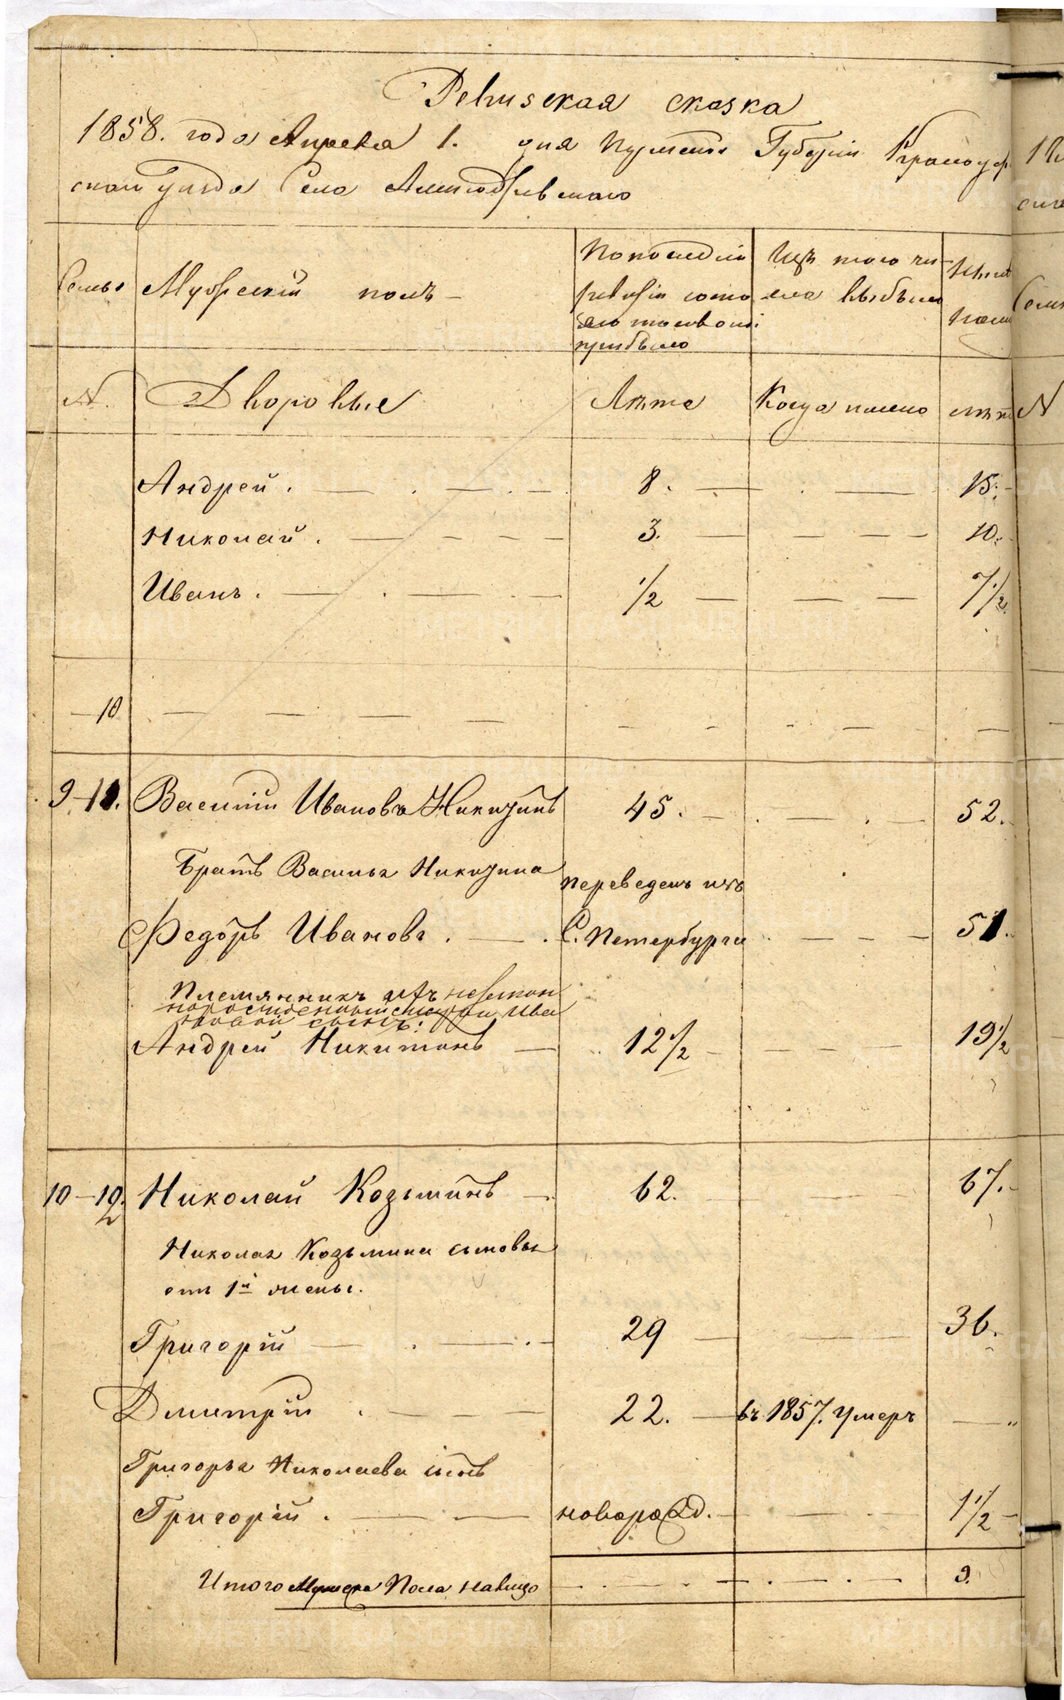 Ревизская сказка
1858. года Апреля 1. дня Пермской Губернии Красноуф
скаго Уезда Села
Семьи Мужеский полъ Попоследнѣй ревизіи состояло Изъ того числа выбыло Нынѣ
N. Дворовые Лѣта Когда имено лѣта
Андрей. 8. 15.
Николай. 3. 10.
Иванъ. 1/2 7 1/2
10
9-11. Василій Ивановъ Никитинъ 45. 52.
Братъ Василья Никитина
переведенъ изъ
Федоръ Ивановъ. С. Петербурга 51.
Племянникъ
сынъ:
Андрей Никитинъ 12 1/2 19 1/2
10-12. Николай Козьминъ 62. 67.
Николая Козьмина сыновья
отъ 1й жены.
Григорій 29 36.
Дмитрій 22. въ 1857. умеръ
Григорья Николаева сынъ
Григорій.новорожд. 1 1/2
Итого Мужеска Пола налицо 9.